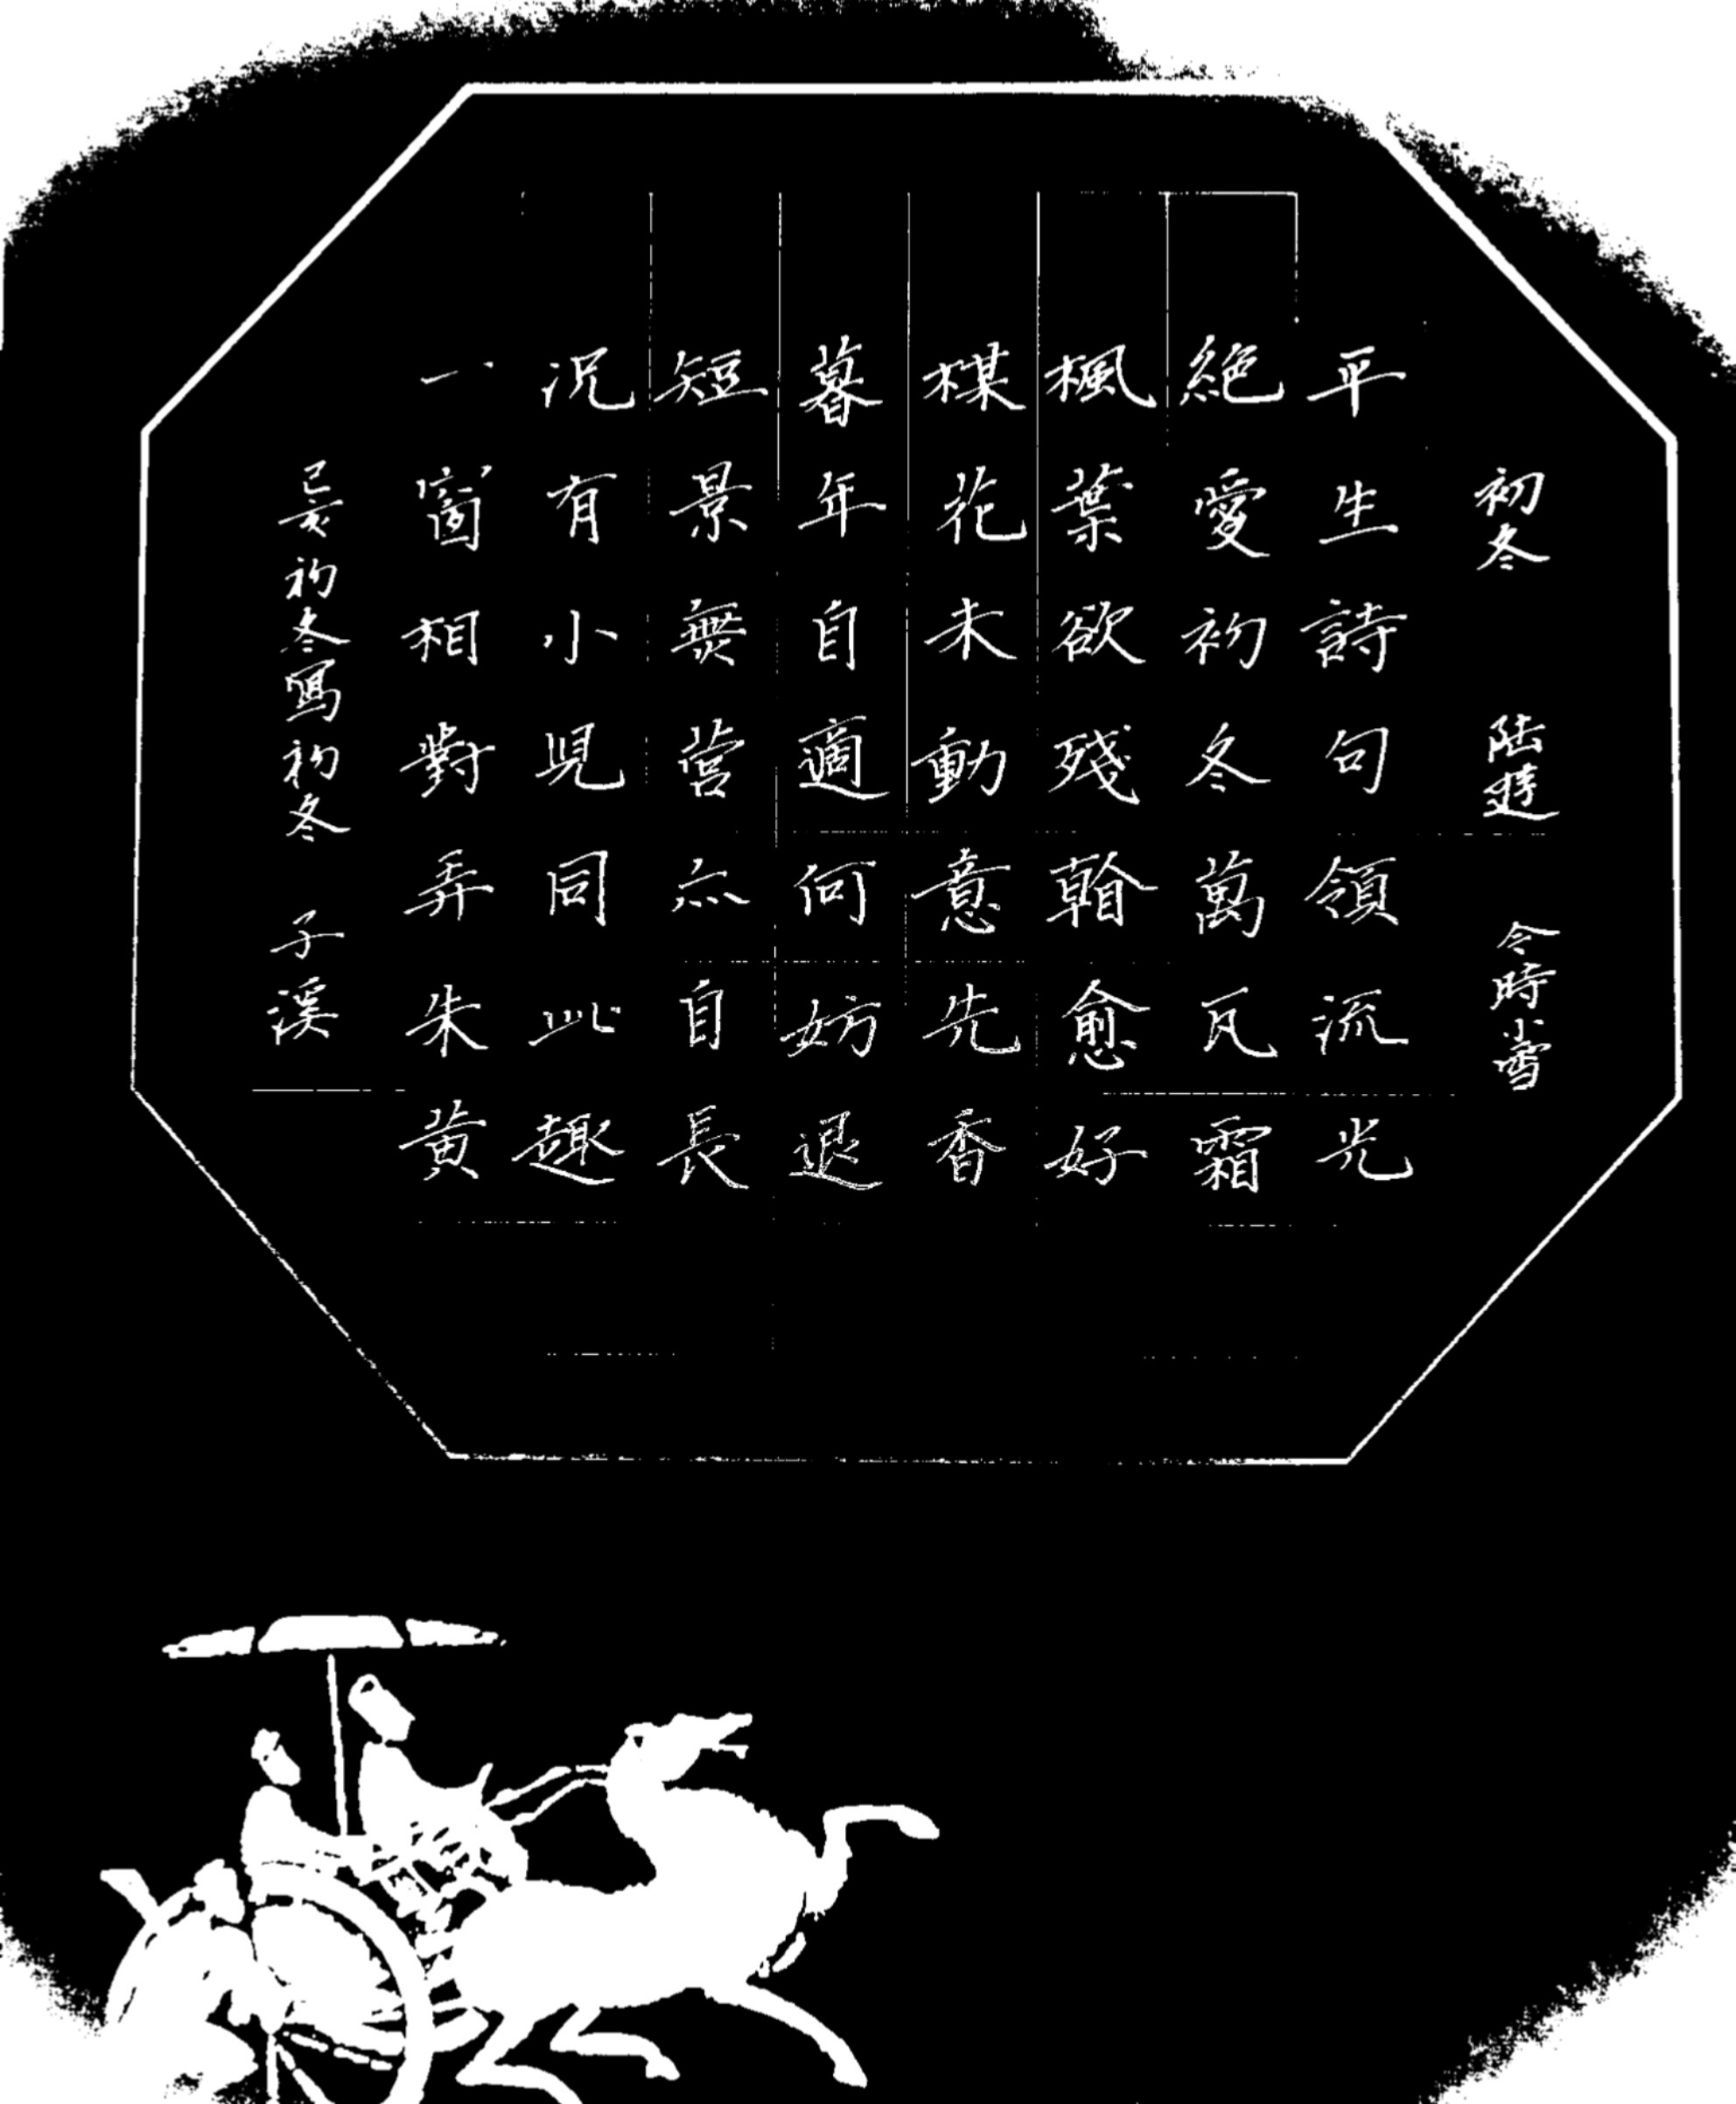 初冬 陆游 今時小雪
平生詩句領流光
絕愛初冬萬瓦霜
楓葉欲殘看愈好
楳花未動意先香
暮年自適何妨退
短景無營亦自長
況有小兒同此趣
一窗相對弄朱黃
己亥初冬寫初冬 子溪